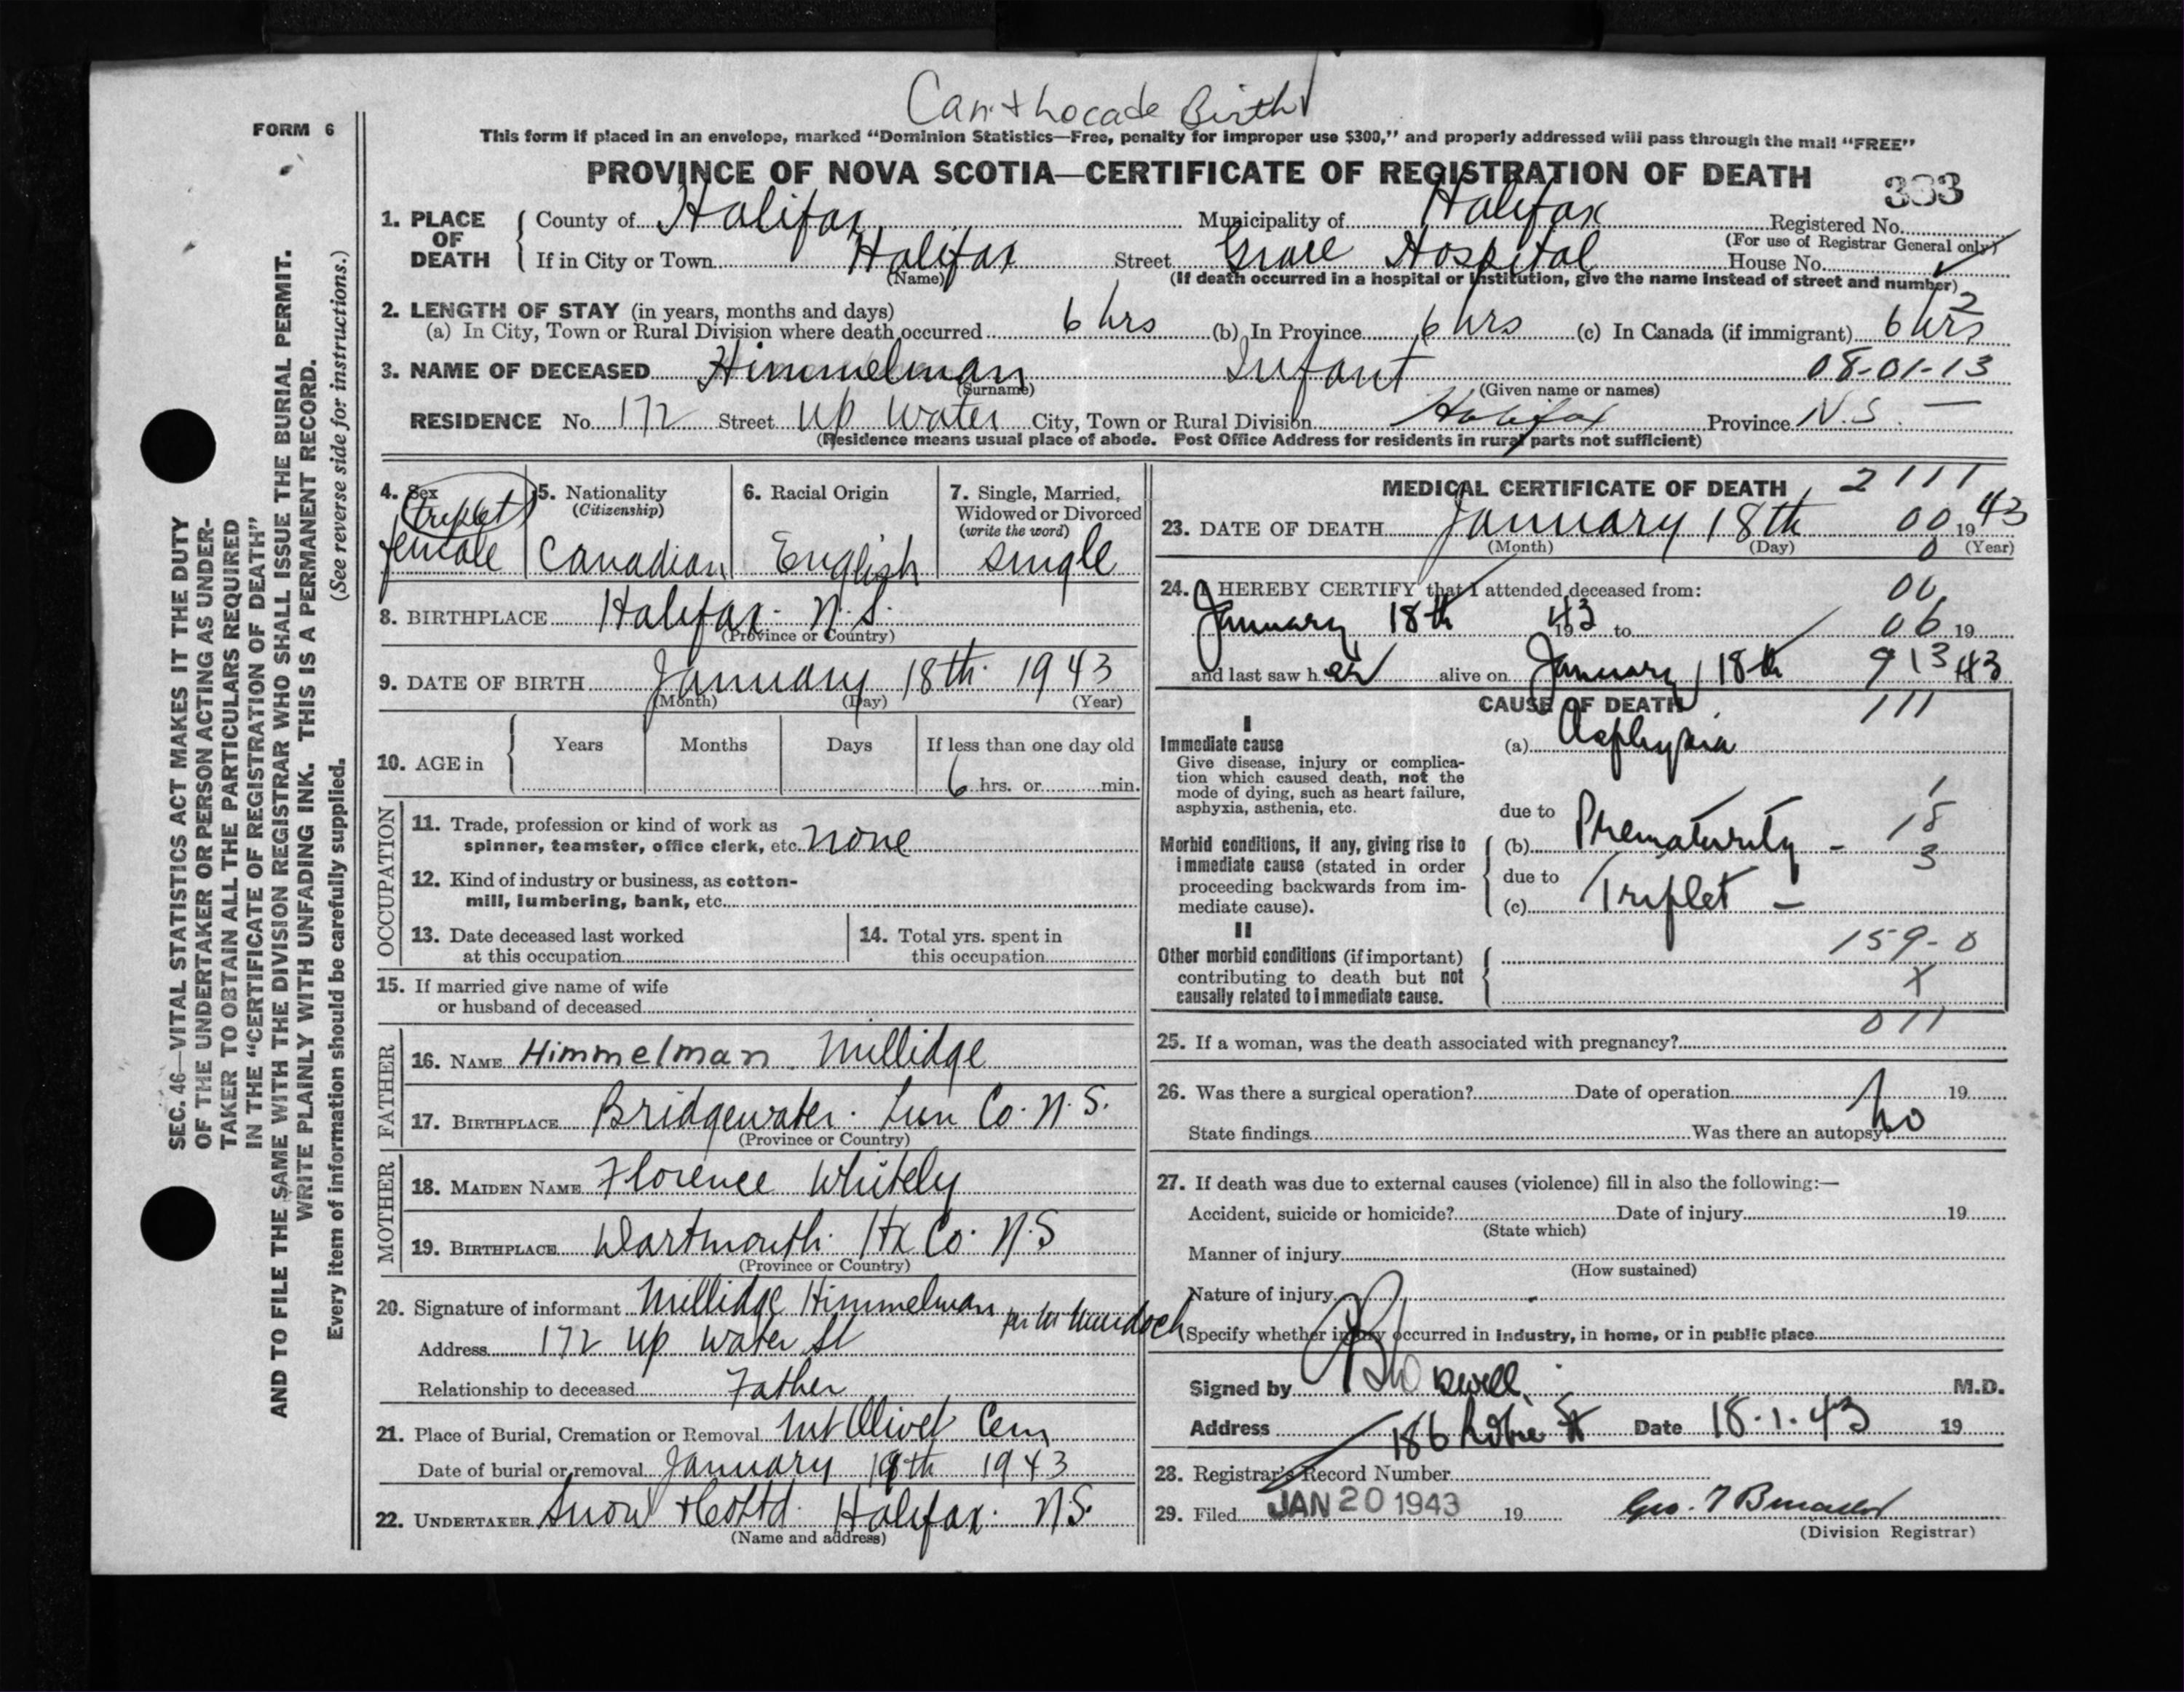 Can't locade Birth
FORM 6
This form if placed in an envelope, marked "Dominion Statistics—Free, penalty for improper use $300," and properly addressed will pass through the mail "FREE"
PROVINCE OF NOVA SCOTIA—CERTIFICATE OF REGISTRATION OF DEATH
333
1. PLACE OF DEATH County of Halifax Municipality of Halifax Registered No.
(For use of Registrar General only)
If in City or Town Halifax Street Grace Hospital House No.
(Name) (If death occurred in a hospital or institution, give the name instead of street and number)
2. LENGTH OF STAY (in years, months and days) 2
(a) In City, Town or Rural Division where death occurred 6 hrs (b) In Province 6 hrs (c) In Canada (if immigrant) 6 hrs
3. NAME OF DECEASED Himmelman Infant 08-01-13
(Surname) (Given name or names)
RESIDENCE No. 172 Street Up Water City, Town or Rural Division Halifax Province N.S. —
(Residence means usual place of abode. Post Office Address for residents in rural parts not sufficient)
4. Sex triplet female
5. Nationality (Citizenship) Canadian
6. Racial Origin English
7. Single, Married, Widowed or Divorced (write the word) single
8. BIRTHPLACE Halifax. N.S.
(Province or Country)
9. DATE OF BIRTH January 18th. 1943
(Month) (Day) (Year)
10. AGE in Years Months Days If less than one day old
6 hrs. or min.
OCCUPATION
11. Trade, profession or kind of work as
spinner, teamster, office clerk, etc. none
12. Kind of industry or business, as cotton-
mill, lumbering, bank, etc.
13. Date deceased last worked
at this occupation
14. Total yrs. spent in
this occupation
15. If married give name of wife
or husband of deceased
FATHER
16. NAME Himmelman. Millidge
17. BIRTHPLACE Bridgewater. Lun Co. N.S.
(Province or Country)
MOTHER
18. MAIDEN NAME Florence Whitely
19. BIRTHPLACE Dartmouth. Hx Co. N.S
(Province or Country)
20. Signature of informant Millidge Himmelman per M Murdoch
Address 172 Up Water St
Relationship to deceased Father
21. Place of Burial, Cremation or Removal Mt Olivet Cem
Date of burial or removal January 19th 1943
22. UNDERTAKER Snow & Co Ltd. Halifax. N.S.
(Name and address)
MEDICAL CERTIFICATE OF DEATH 2111
23. DATE OF DEATH January 18th 00 1943
(Month) (Day) 0 (Year)
24. I HEREBY CERTIFY that I attended deceased from: 00
January 18th 1943 to 06 19
and last saw her alive on January 18th 913 43
CAUSE OF DEATH 111
I
Immediate cause
Give disease, injury or complica-
tion which caused death, not the
mode of dying, such as heart failure,
asphyxia, asthenia, etc.
(a) Asphyxia
1
due to
18
Morbid conditions, if any, giving rise to
immediate cause (stated in order
proceeding backwards from im-
mediate cause).
(b) Prematurity -
3
due to
(c) Triplet —
II
Other morbid conditions (if important)
contributing to death but not
causally related to immediate cause.
159-0
X
011
25. If a woman, was the death associated with pregnancy?
26. Was there a surgical operation? Date of operation 19
State findings Was there an autopsy? no
27. If death was due to external causes (violence) fill in also the following:—
Accident, suicide or homicide? Date of injury 19
(State which)
Manner of injury
(How sustained)
Nature of injury
Specify whether injury occurred in industry, in home, or in public place
Signed by M.D.
Address 186 Robie St Date 18.1.43 19
28. Registrar's Record Number
29. Filed JAN 20 1943 19
(Division Registrar)
SEC. 46—VITAL STATISTICS ACT MAKES IT THE DUTY
OF THE UNDERTAKER OR PERSON ACTING AS UNDER-
TAKER TO OBTAIN ALL THE PARTICULARS REQUIRED
IN THE "CERTIFICATE OF REGISTRATION OF DEATH"
AND TO FILE THE SAME WITH THE DIVISION REGISTRAR WHO SHALL ISSUE THE BURIAL PERMIT.
WRITE PLAINLY WITH UNFADING INK. THIS IS A PERMANENT RECORD.
Every item of information should be carefully supplied. (See reverse side for instructions.)